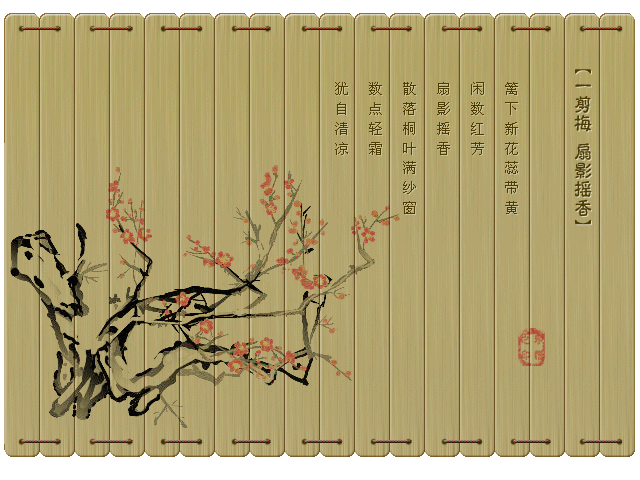 【一剪梅 扇影摇香】
篱下新花蕊带黄
闲数红芳
扇影摇香
散落桐叶满纱窗
数点轻霜
犹自清凉